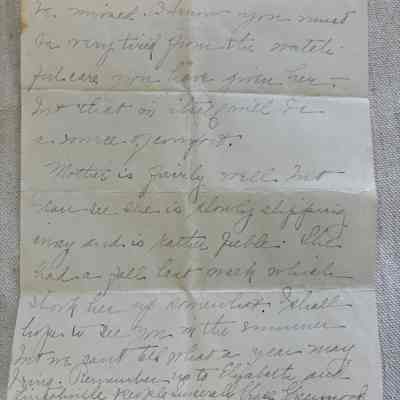 be missed. I know you must
be very tired from the watch-
ful care you have given her –
but that in itself will be
a source of comfort.
Mother is fairly well but
can see she is slowly slipping
away and is rather feeble. She
had a fall last week which
shook her up somewhat. I shall
hope to see you in the summer
but we can't tell what a year may
bring. Remember us to Elizabeth and